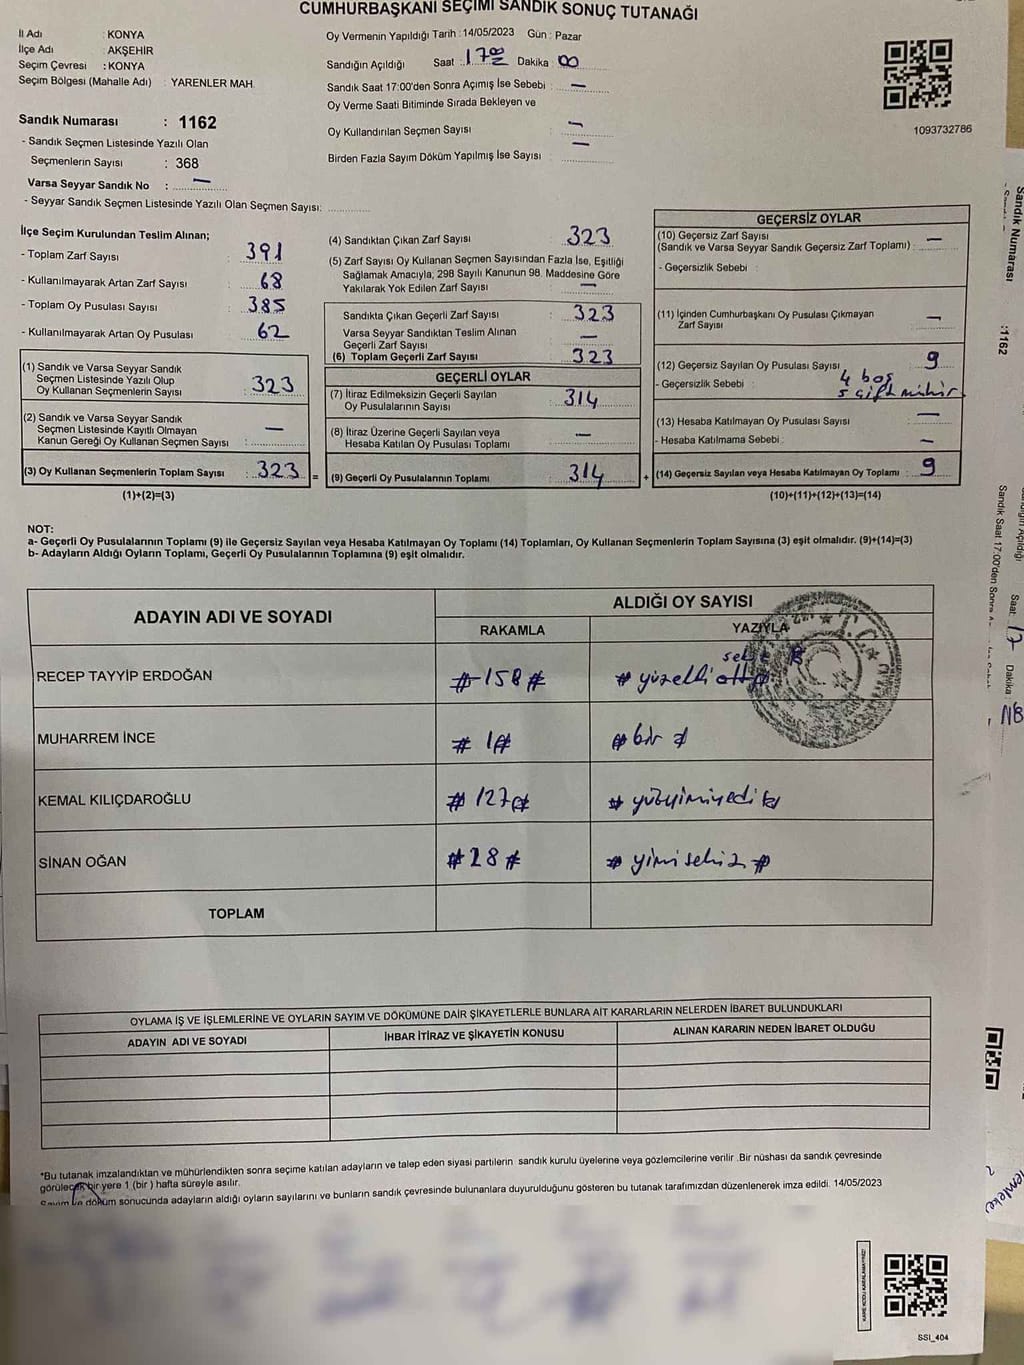 CUMHURBAŞKANI SEÇİMİ SANDIK SONUÇ TUTANAĞI
İl Adı : KONYA
İlçe Adı : AKŞEHİR
Seçim Çevresi : KONYA
Seçim Bölgesi (Mahalle Adı) : YARENLER MAH.
Sandık Numarası : 1162
- Sandık Seçmen Listesinde Yazılı Olan
Seçmenlerin Sayısı : 368
Varsa Seyyar Sandık No : —
- Seyyar Sandık Seçmen Listesinde Yazılı Olan Seçmen Sayısı:
Oy Vermenin Yapıldığı Tarih : 14/05/2023 Gün : Pazar
Sandığın Açıldığı Saat : 17 00 Dakika : 00
Sandık Saat 17:00'den Sonra Açımış İse Sebebi : —
Oy Verme Saati Bitiminde Sırada Bekleyen ve
Oy Kullandırılan Seçmen Sayısı : —
Birden Fazla Sayım Döküm Yapılmış İse Sayısı : —
1093732786
İlçe Seçim Kurulundan Teslim Alınan;
- Toplam Zarf Sayısı : 391
- Kullanılmayarak Artan Zarf Sayısı : 68
- Toplam Oy Pusulası Sayısı : 385
- Kullanılmayarak Artan Oy Pusulası : 62
(1) Sandık ve Varsa Seyyar Sandık
Seçmen Listesinde Yazılı Olup
Oy Kullanan Seçmenlerin Sayısı : 323
(2) Sandık ve Varsa Seyyar Sandık
Seçmen Listesinde Kayıtlı Olmayan
Kanun Gereği Oy Kullanan Seçmen Sayısı : —
(3) Oy Kullanan Seçmenlerin Toplam Sayısı : 323 =
(1)+(2)=(3)
(4) Sandıktan Çıkan Zarf Sayısı : 323
(5) Zarf Sayısı Oy Kullanan Seçmen Sayısından Fazla İse, Eşitliği
Sağlamak Amacıyla, 298 Sayılı Kanunun 98. Maddesine Göre
Yakılarak Yok Edilen Zarf Sayısı : —
Sandıkta Çıkan Geçerli Zarf Sayısı : 323
Varsa Seyyar Sandıktan Teslim Alınan
Geçerli Zarf Sayısı : —
(6) Toplam Geçerli Zarf Sayısı : 323
GEÇERLİ OYLAR
(7) İtiraz Edilmeksizin Geçerli Sayılan
Oy Pusulalarının Sayısı : 314
(8) İtiraz Üzerine Geçerli Sayılan veya
Hesaba Katılan Oy Pusulası Toplamı : —
(9) Geçerli Oy Pusulalarının Toplamı : 314 +
GEÇERSİZ OYLAR
(10) Geçersiz Zarf Sayısı
(Sandık ve Varsa Seyyar Sandık Geçersiz Zarf Toplamı) : —
- Geçersizlik Sebebi :
(11) İçinden Cumhurbaşkanı Oy Pusulası Çıkmayan
Zarf Sayısı : —
(12) Geçersiz Sayılan Oy Pusulası Sayısı : 9
- Geçersizlik Sebebi : 4 boş
5 çift mühür
(13) Hesaba Katılmayan Oy Pusulası Sayısı : —
- Hesaba Katılmama Sebebi : —
(14) Geçersiz Sayılan veya Hesaba Katılmayan Oy Toplamı : 9
(10)+(11)+(12)+(13)=(14)
NOT:
a- Geçerli Oy Pusulalarının Toplamı (9) ile Geçersiz Sayılan veya Hesaba Katılmayan Oy Toplamı (14) Toplamları, Oy Kullanan Seçmenlerin Toplam Sayısına (3) eşit olmalıdır. (9)+(14)=(3)
b- Adayların Aldığı Oyların Toplamı, Geçerli Oy Pusulalarının Toplamına (9) eşit olmalıdır.
ADAYIN ADI VE SOYADI ALDIĞI OY SAYISI
RAKAMLA YAZIYLA
T.C.
RECEP TAYYİP ERDOĞAN # 158 # # yüzelli
MUHARREM İNCE # 1 # # bir #
KEMAL KILIÇDAROĞLU # 127 # # yüzyirmiyedi #
SİNAN OĞAN # 28 # # yirmisekiz #
TOPLAM
OYLAMA İŞ VE İŞLEMLERİNE VE OYLARIN SAYIM VE DÖKÜMÜNE DAİR ŞİKAYETLERLE BUNLARA AİT KARARLARIN NELERDEN İBARET BULUNDUKLARI
ADAYIN ADI VE SOYADI İHBAR İTİRAZ VE ŞİKAYETİN KONUSU ALINAN KARARIN NEDEN İBARET OLDUĞU
*Bu tutanak imzalandıktan ve mühürlendikten sonra seçime katılan adayların ve talep eden siyasi partilerin sandık kurulu üyelerine veya gözlemcilerine verilir .Bir nüshası da sandık çevresinde
görülecek bir yere 1 (bir ) hafta süreyle asılır.
Sayım ve döküm sonucunda adayların aldığı oyların sayılarını ve bunların sandık çevresinde bulunanlara duyurulduğunu gösteren bu tutanak tarafımızdan düzenlenerek imza edildi. 14/05/2023
KARE KODU KARALAMAYINIZ!
SSI_404
Sandık Numarası :1162
Saat: 17 Dakika :
Sandık Saat 17:00'den Sonra